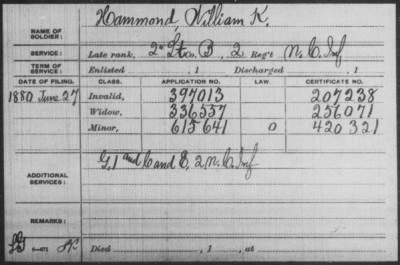 NAME OF SOLDIER: Hammond, William K.
SERVICE: Late rank, 2" Lt Co. B, 2 Reg't N. C. Inf
TERM OF SERVICE: Enlisted , 1 Discharged , 1
DATE OF FILING. CLASS. APPLICATION NO. LAW. CERTIFICATE NO.
1880 June 27 Invalid, 397013 207238
Widow, 336557 256071
Minor, 615641 0 420321
ADDITIONAL SERVICES: G, 1 and C and E, 2 N. C. Inf
REMARKS:
Died , 1 , at